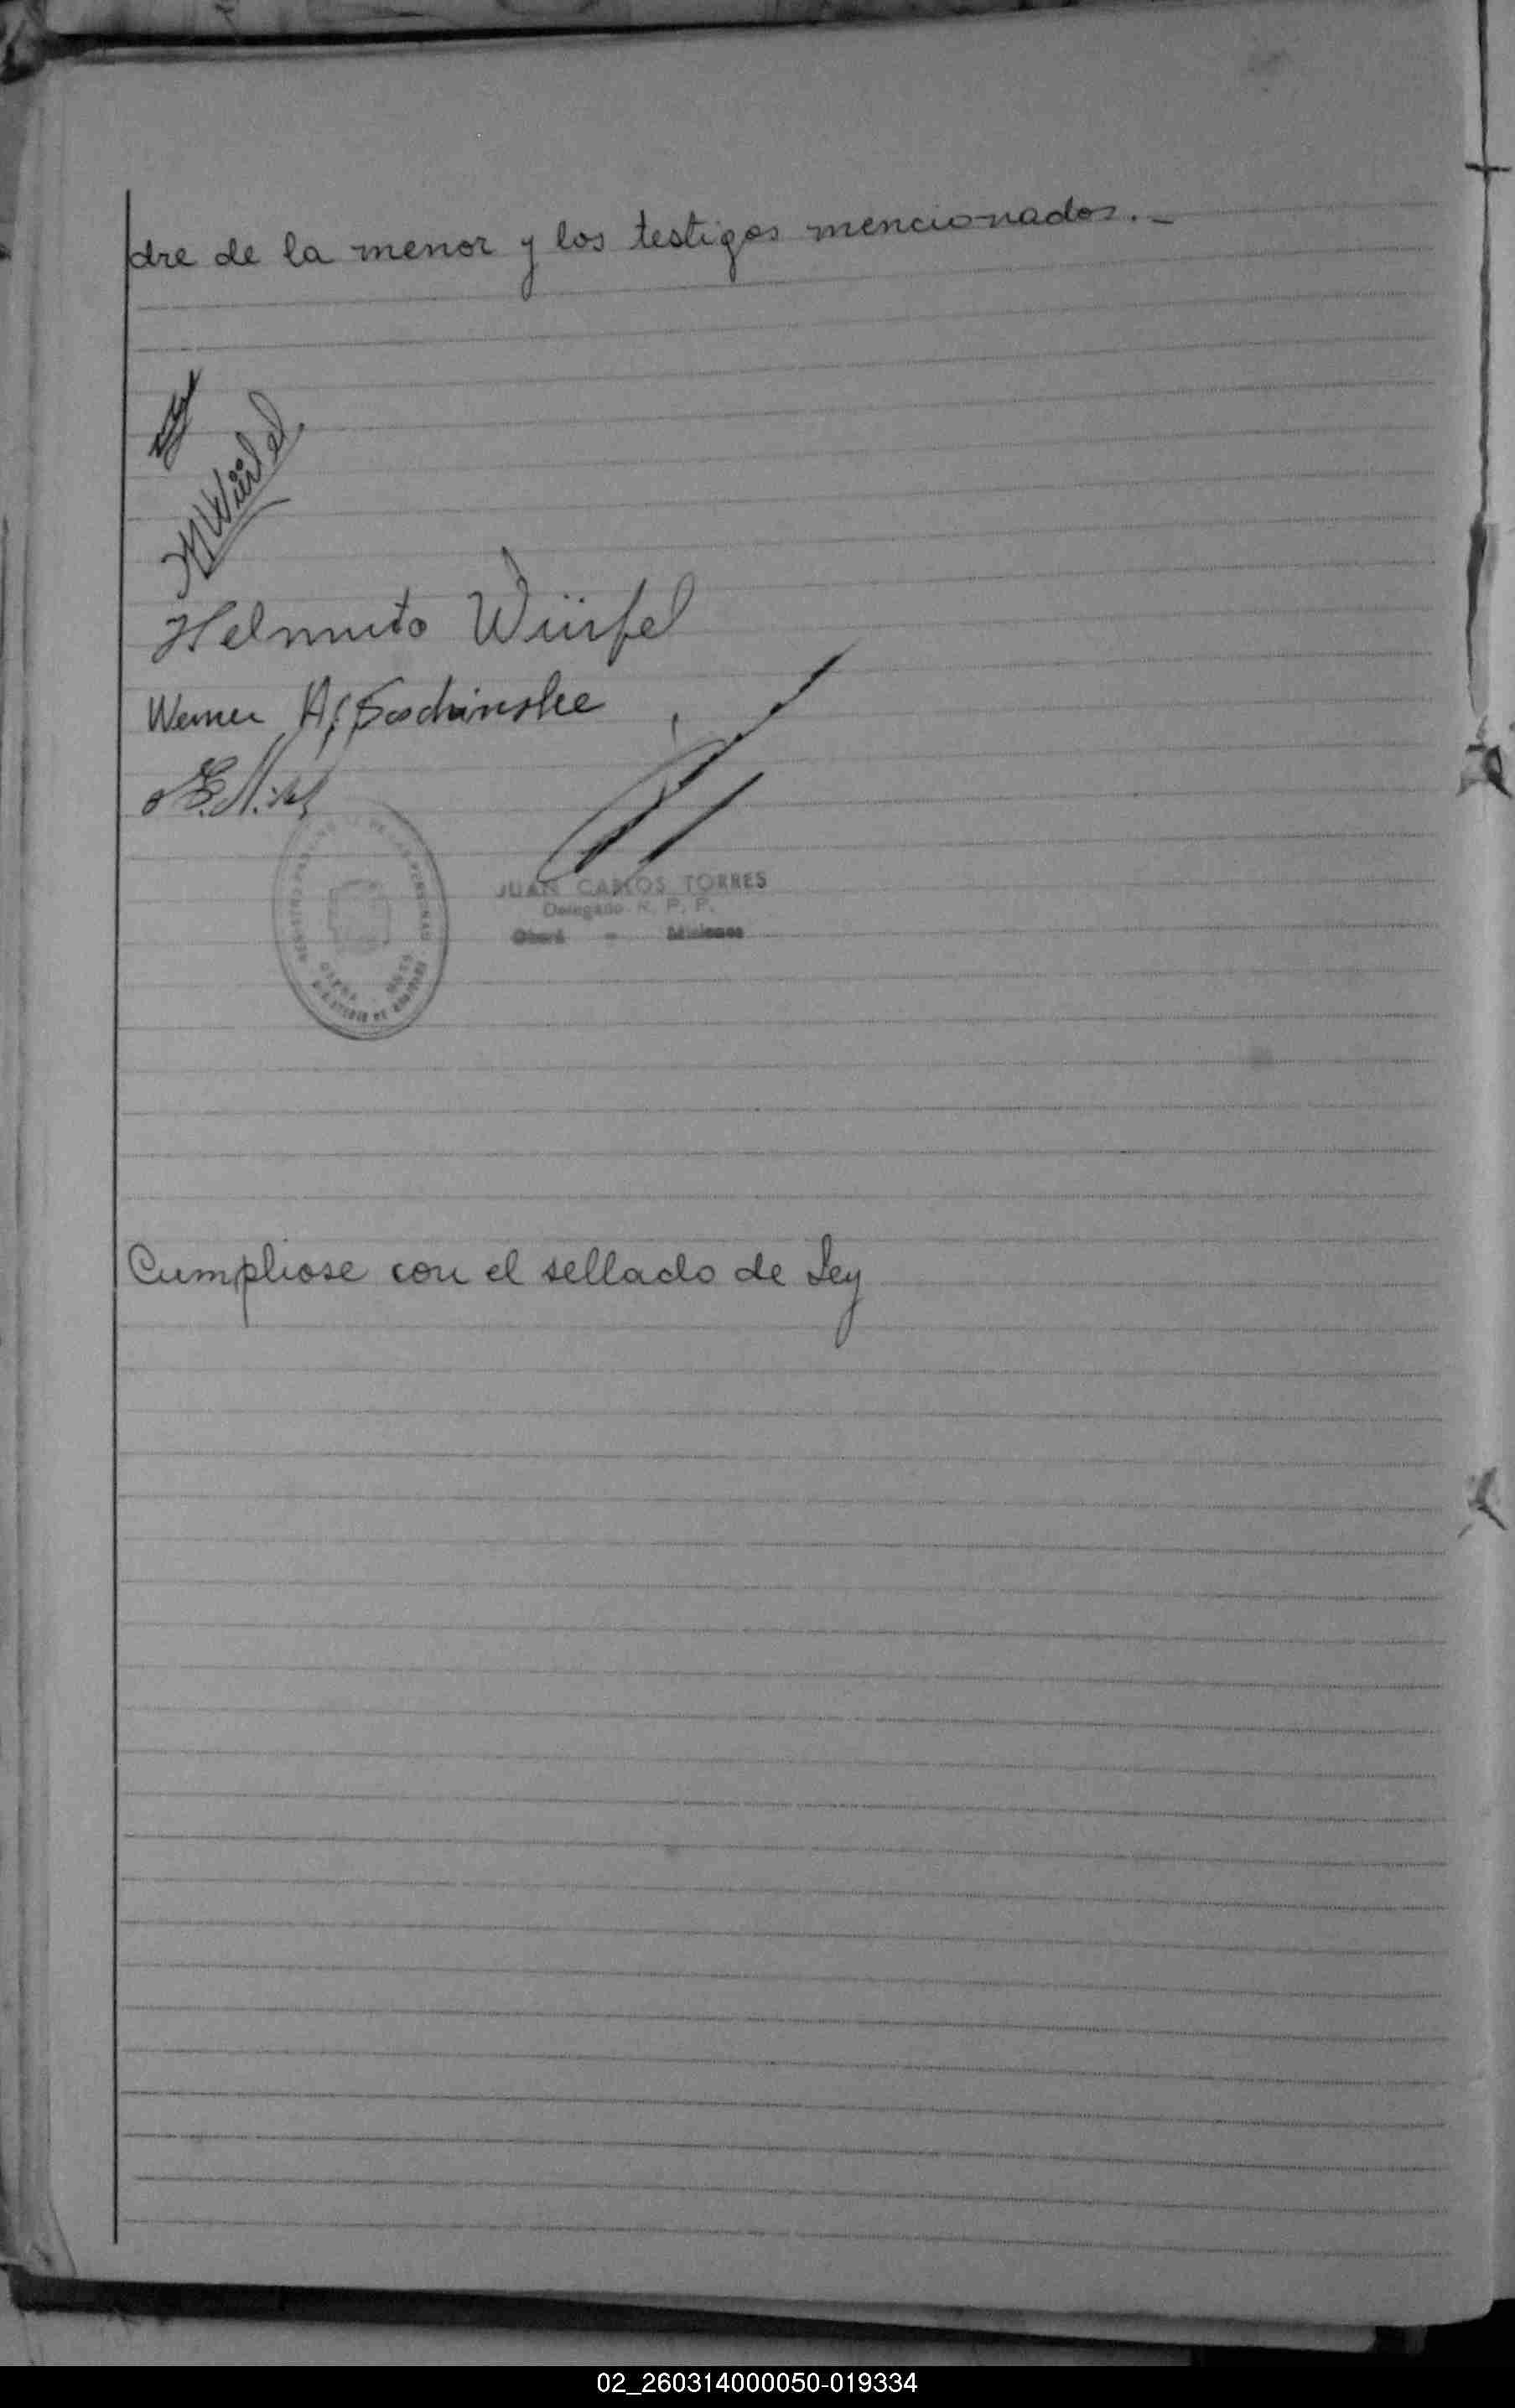 dre de la menor y los testigos mencionados.-
Würfel
Helmuto Würfel
Werner A.
JUAN CARLOS TORRES
Delegado R. P. P.
Oberá - Misiones
Cumpliose con el sellado de Ley
02_260314000050-019334